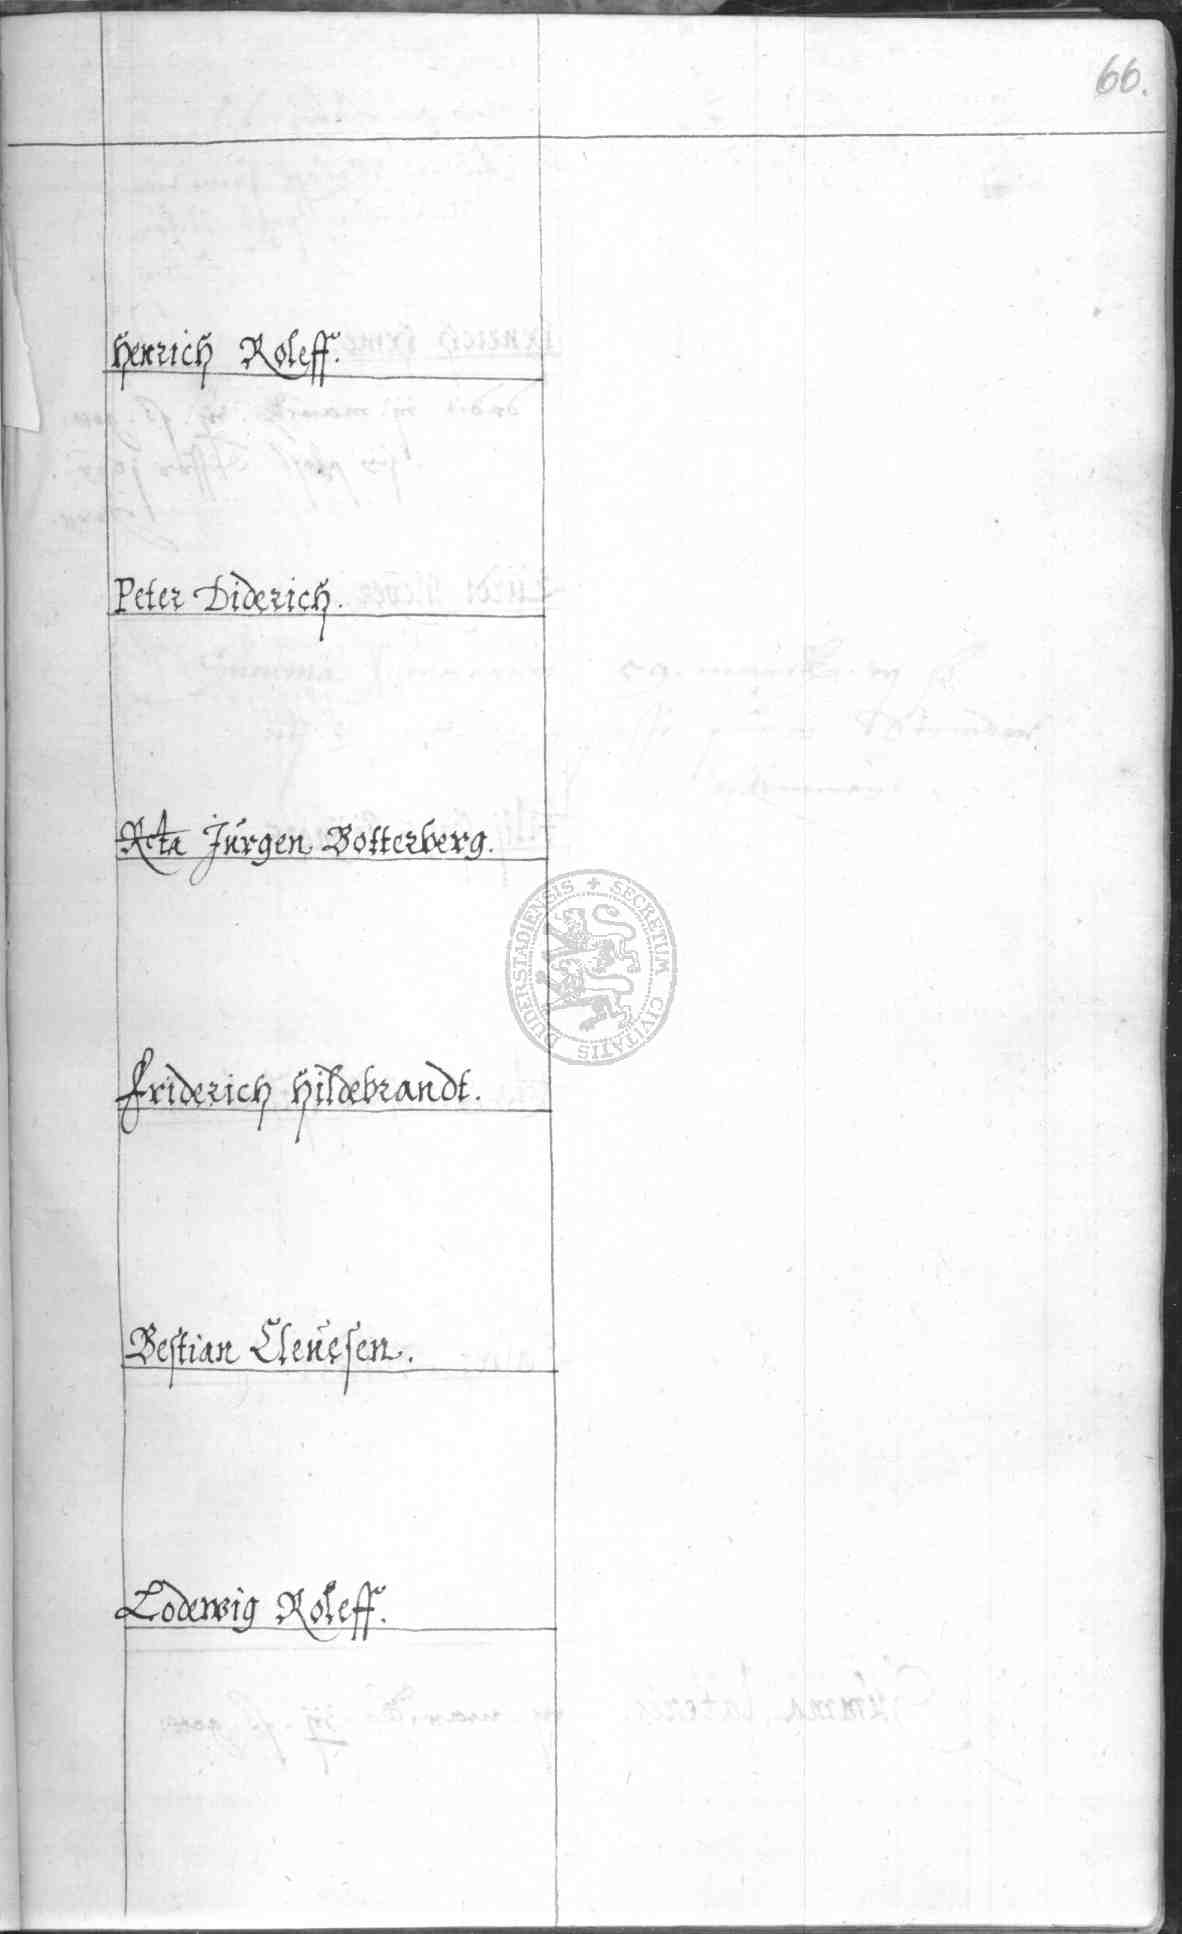 66.
Henrich Roleff.
Peter Diderich.
Jürgen Botterberg.
Friderich Hildebrandt.
DUDERSTADIENSIS + SECRETUM CIVITATIS
Bestian Cleuesen.
Lodewig Roleff.